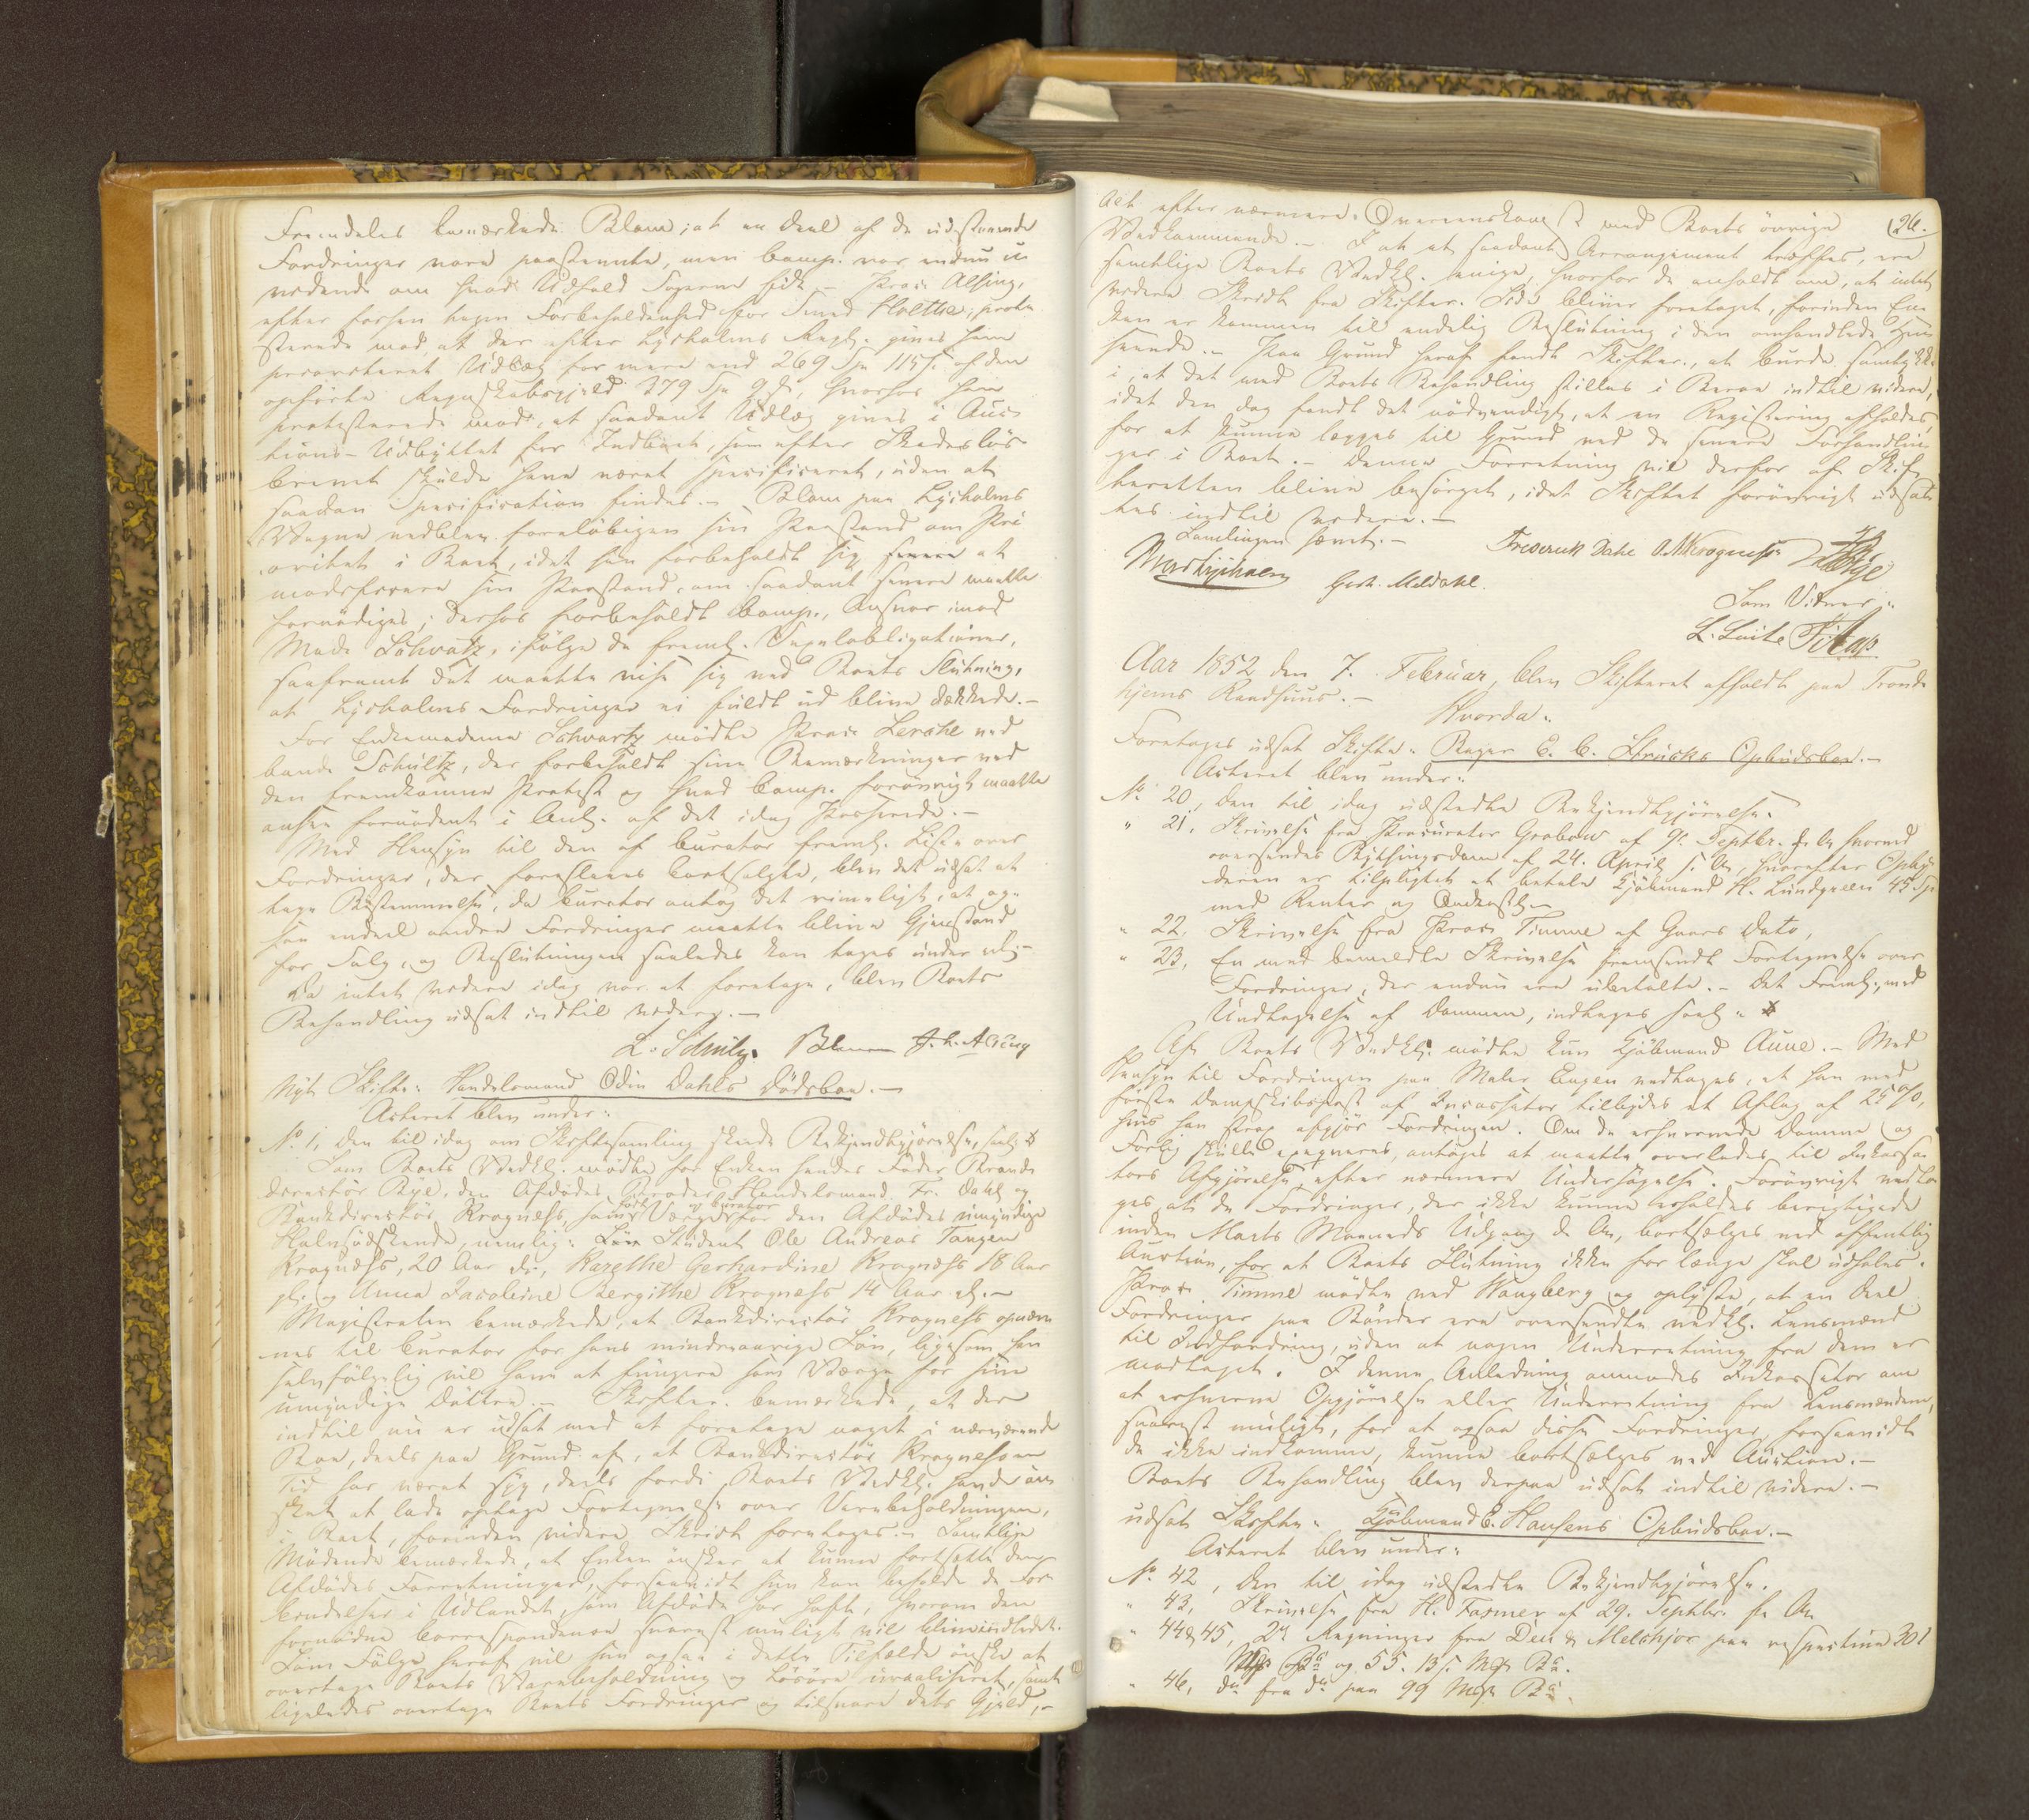 Fremdeles bemærkede Blom, at en Deel af de udestaaende
Fordringer vare paastevnte, men Comp. var endnu u-
vidende om hvad Udfald Sagerne fik. – Proc: Alsing,
efter forhen tagen Forbeholdenhed for Smed Holthe, prote-
sterede mod, at der efter Lysholms Regn. gives ham
prioriteret Udlæg for mere end 269 Spd 115 s. af den
opførte Regnskabsgjeld 379 Spd 9 s., hvorhos han
protesterede mod, at saadant Udlæg gives i Auc-
tions-Udbyttet for Indboet, som efter Skadeslös-
brevet skulde have været specificeret, uden at
saadan Specification findes. – Blom paa Lysholms
Vegne nedlagde foreløbigen sin Paastand om Pri-
oritet i Boet, idet han forbeholdt sig senere at
modificere sin Paastand, om saadant senere maatte
fornødiges; derhos forbeholdt Comp. Ansvar imod
Mads Schvatz, ifölge de freml. Vexelobligationer,
saafremt det maatte vise sig ved Boets Slutning,
at Lysholms Fordringer ei fuldt ud blive dækkede. –
For Enkemadame Schvartz mødte Proc: Lerche ved
Schultz, der forbeholdt sine Bemærkninger ved
den fremkomne Protest og hvad Comp. forøvrigt maatte
ansee fornødent i Anl. af det idag Passerede. –
Med Hensyn til den af Curator freml. Liste over
Fordringer, der foreslaaes bortsolgte, blev det udsat at
tage Bestemmelse, da Curator antog det rimeligt, at og-
saa endeel andre Fordringer maatte blive Gjenstand
for Salg, og Beslutningen saaledes kan tages under et. –
Da intet videre idag var at foretage, blev Boets
Behandling udsat indtil videre. –
L. Schultz. Blom J. L. Alsing
Nyt Skifte: Handelsmand Odin Dahls Dödsboe. –
Acteret blev under:
No 1, den til idag om Skiftesamling skede Bekjendtgjörelse,
Som Boets Vedkl. mødte for Enken hendes Fader Brand-
directör Bye, den Afdødes Broder Handelsmand Fr. Dahl og
Bankdirectör Krogness, som født Værge og Curator for den Afdødes umyndige
Halvsödskende, nemlig: Student Ole Andreas Tangen
Krognæss, 20 Aar gl., Karethe Gerhardine Krognæss 18 Aar
gl. og Anna Jacobine Bergithe Krogness 14 Aar gl. –
Magistraten bemærkede, at Bankdirectör Krogness opnæv-
nes til Curator for hans mindreaarige Sön, ligesom han
selvfølgelig vil have at fungere som Værge for sine
umyndige Døttre. – Skifter. bemærkede, at det
indtil nu er udsat med at foretage noget i nærværende
Boe, deels paa Grund af, at Bankdirectör Krogness en
Tid har været syg, deels fordi Boets Vedkl. havde øn-
sket at lade optage Fortegnelse over Varebeholdningen,
i Boet, forinden videre Skridt foretages. – Samtlige
Mødende bemærkede, at Enken önsker at kunne fortsætte den
Afdødes Forretninger, forsaavidt hun kan beholde de For-
bindelser i Udlandet, som Afdøde har havt, hvorom den
fornødne Correspondence snarest muligt vil blive indledet.
Som Fölge heraf vil hun ogsaa i dette Tilfælde ønske at
overtage Boets Varebeholdning og Lösöre urealiseret, samt
ligeledes overtage Boets Fordringer og tilsvare dets Gjeld, –
26.
Alt efter nærmere Overeenskomst med Boets övrige
Vedkommende. – I at et saadant Arrangement træffes, ere
samtlige Boets Vedkl. enige, hvorfor de anholdt om, at intet
videre Skridt fra Skifter. Side bliver foretaget, forinden En-
ken er kommen til endelig Beslutning i den omhandlede Hen-
seende. – Paa Grund heraf fandt Skifter., at burde samtykke
i, at det med Boets Behandling stilles i Beroe indtil videre,
idet den dog fandt det nödvendigt, at en Registering afholdes,
for at kunne lægges til Grund ved de senere Forhandlin-
ger i Boet. – Denne Forretning vil derfor af Skif-
teretten blive besørget, idet Skiftet forövrigt udsæt-
tes indtil videre. –
Samlingen hævet. –
Frederik Dahl O. Krogness Bye
Gerh. Meldahl.
Som Vidner:
L. Luite
Aar 1852 den 7. Februar, blev Skifteret afholdt paa Trond-
hjems Raadhuus. –
Hvorda:
Foretages udsat Skifte: Bager C. C. Strücks Opbudsboe. –
Acteret blev under:
No 20, den til idag udstedte Bekjendtgjörelse.
" 21, Skrivelse fra Procurator Grabow af 9. Septbr. f. A. hvorved
oversendes Bythingsdom af 24. April f. A., hvorefter Opby-
deren er tilpligtet at betale Kjöbmand H. Lundgreen 45 Sp
med Renter og Omkostn.
" 22, Skrivelse fra Proc: Timme af Gaars Dato,
" 23, En med bemeldte Skrivelse fremsendt Fortegnelse over
Fordringer, der endnu ere ubetalte. – Det Freml., med
Undtagelse af Dommen, indtages
Af Boets Vedkl. mødte kun Kjöbmand Aune. – Med
Hensyn til Fordringen paa Maler Eugen vedtages, at han med
første Dampskibspost af Incassator tilbydes et Afslag af 25 %,
hvis han strax afgjör Fordringen. Om de erhvervede Domme og
Forlig skulle exeqveres, antoges at maatte overlades til Inkassa-
tors Afgjörelse efter nærmere Undersögelse. Forövrigt vedto-
ges, at de Fordringer, der ikke kunne erholdes berigtigede
inden Marts Maaneds Udgang d. A., bortsælges ved offentlig
Auction, for at Boets Slutning ikke for længe skal udhales.
Proc: Timme mødte ved Waugberg og oplyste, at en Deel
Fordringer paa Bönder ere oversendte vedkl. Lensmænd
til Indfordring, uden at nogen Underretning fra dem er
modtaget. I denne Anledning anmodes Inkassator om
at erhverve Opgjörelse eller Underretning fra Lensmændene,
snarest muligt, for at ogsaa disse Fordringer, forsaavidt
de ikke indkomme, kunne bortsælges ved Auction. –
Boets Behandling blev derpaa udsat indtil videre. –
udsat Skifte: Kjöbmand C. Hansens Opbudsboe. –
Acteret blev under:
No 42, den til idag udstedte Bekjendtgjörelse.
" 43, Skrivelse fra H. Fasmer af 29. Septbr. f. A.
" 44 & 45, 2de Regninger fra Den & Melchior paa respective 301
og 55. 13 s.
" 46, do fra do paa 99